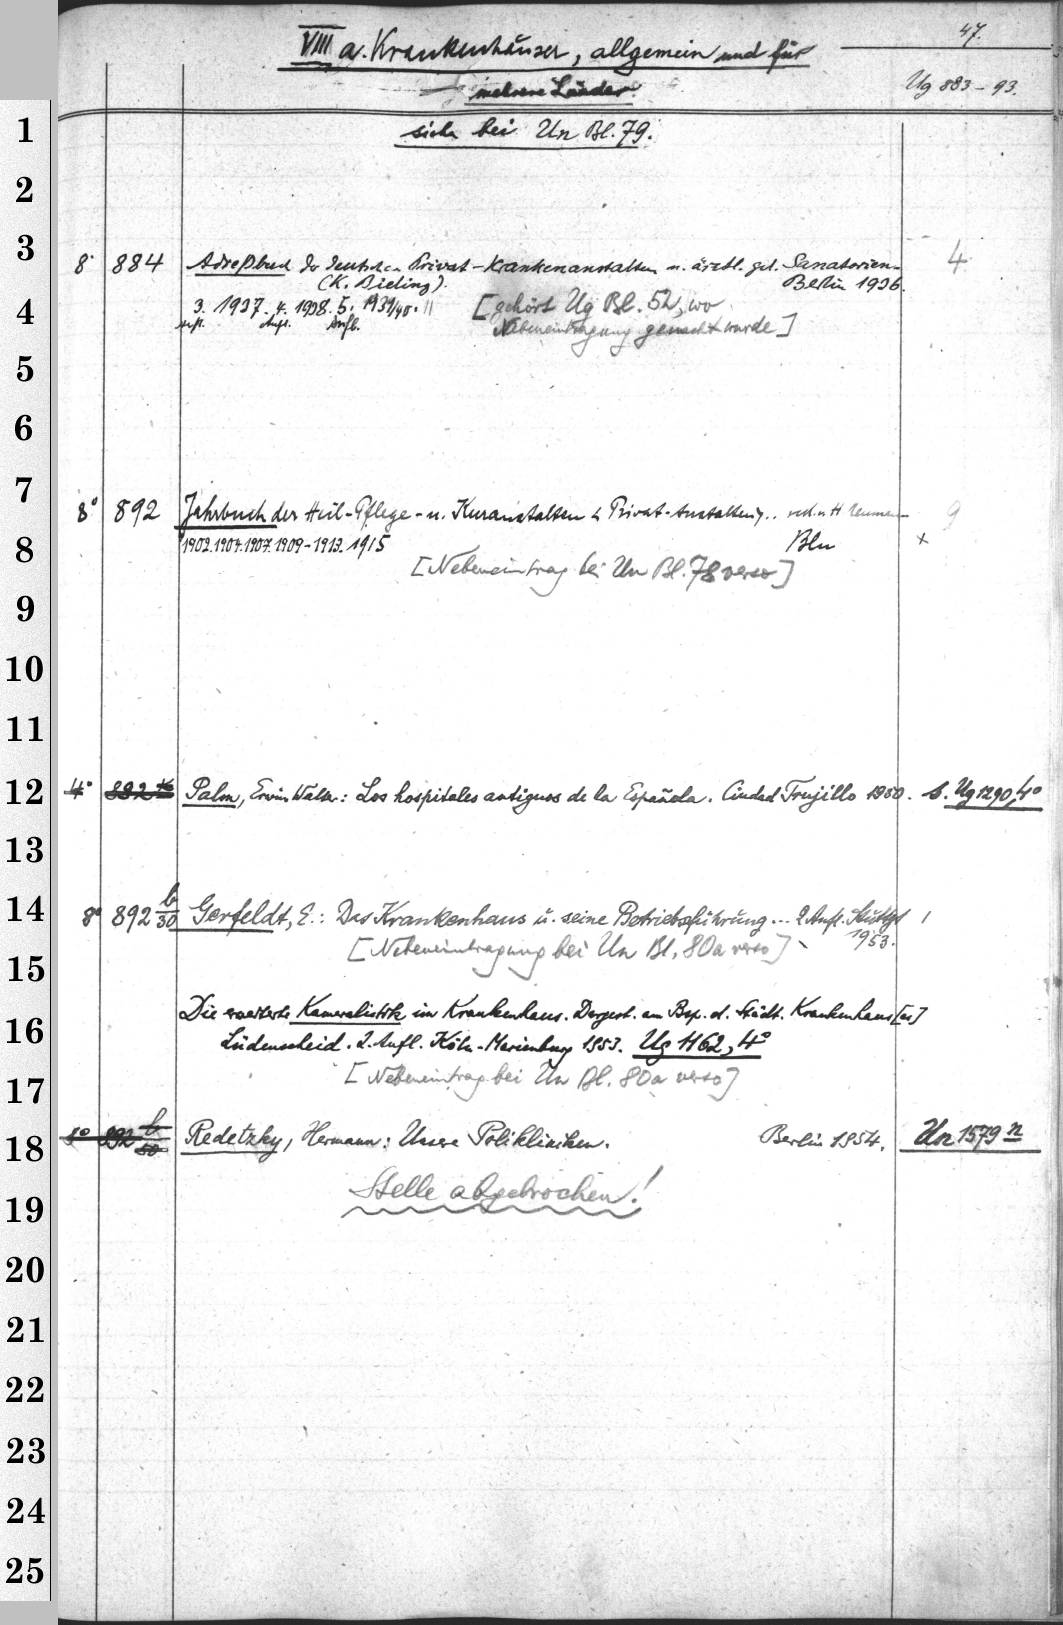 47.
VIII a. Krankenhäuser, allgemein und für
mehrere Länder.
Ug 883-93.
1
siehe bei Un Bl. 79.
2
3
8° 884 Adreßbuch der Deutschen Privat-Krankenanstalten u. ärztl. gel. Sanatorien. 4
(K. Bieling). Berlin 1936.
4
3. 1937. 4. 1938. 5. 1939/40. [gehört Ug Bl. 52, wo
Aufl. Aufl. Aufl. Nebeneintragung gemacht wurde]
5
6
7
8° 892 Jahrbuch der Heil-Pflege- u. Kuranstalten Privat-Anstalten, .. red. v. H. Neumann 9
8
1902. 1904. 1907. 1909-1913. 1915 Bln x
[Nebeneintrag bei Un Bl. 78 verso]
9
10
11
12
4° 892 Palm, Erwin Walter: Los hospitales antiguos de la Española. Ciudad Trujillo 1950. s. Ug 1290, 4°
13
14
8° 892 b/30 Gerfeldt, E.: Das Krankenhaus u. seine Betriebsführung... 2. Aufl. Stuttgt 1
1953.
[Nebeneintragung bei Un Bl. 80a verso]
15
Die erweiterte Kameralistik im Krankenhaus. Dargest. am Bsp. d. Städt. Krankenhaus[es]
16
Lüdenscheid. 2. Aufl. Köln-Marienburg 1953. Ug 1162, 4°
[Nebeneintrag bei Un Bl. 80a verso]
17
18
8° 892 b/50 Redetzky, Hermann: Unsere Polikliniken. Berlin 1954. Un 1579 n
19
Stelle abgebrochen!
20
21
22
23
24
25